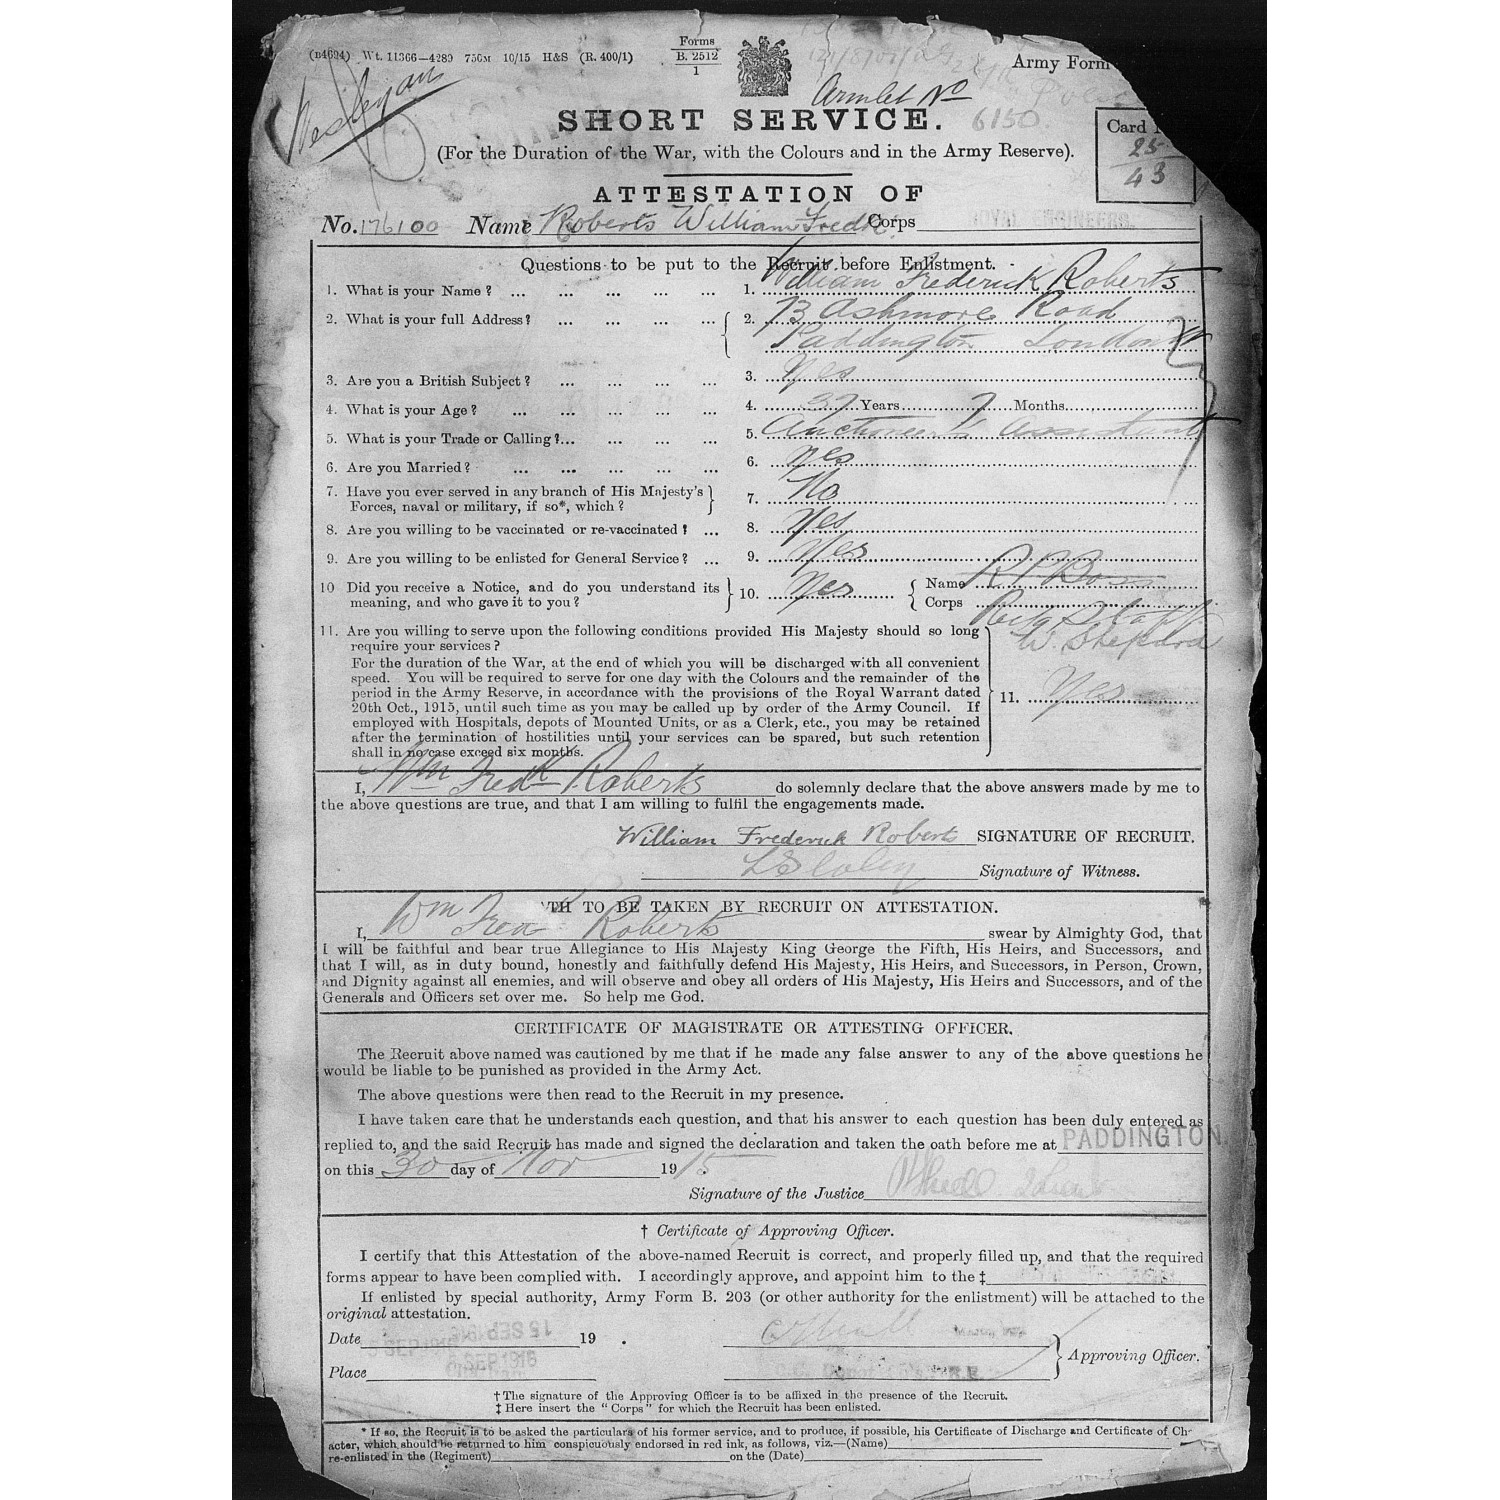 (B4694) Wt. 11366—4289 750M 10/15 H&S (R. 400/1)
Forms
B. 2512
1
Army Form
Wesleyan
Armlet No
6150
SHORT SERVICE.
(For the Duration of the War, with the Colours and in the Army Reserve).
Card N
25
43
ATTESTATION OF
No. 176100 Name Roberts William Fredk. Corps ROYAL ENGINEERS.
Questions to be put to the Recruit before Enlistment.
1. What is your Name? ... ... ... ... ... 1. William Frederick Roberts
2. What is your full Address? ... ... ... ... 2. 73 Ashmore Road
Paddington London W
3. Are you a British Subject? ... ... ... ... 3. Yes
4. What is your Age? ... ... ... ... ... 4. 37 Years 7 Months
5. What is your Trade or Calling?... ... ... ... 5. Auctioneer's Assistant
6. Are you Married? ... ... ... ... ... 6. Yes
7. Have you ever served in any branch of His Majesty's
Forces, naval or military, if so*, which? 7. No
8. Are you willing to be vaccinated or re-vaccinated? ... 8. Yes
9. Are you willing to be enlisted for General Service? ... 9. Yes
10 Did you receive a Notice, and do you understand its
meaning, and who gave it to you? 10. Yes { Name
Corps
W. Shepherd
11. Are you willing to serve upon the following conditions provided His Majesty should so long
require your services?
For the duration of the War, at the end of which you will be discharged with all convenient
speed. You will be required to serve for one day with the Colours and the remainder of the
period in the Army Reserve, in accordance with the provisions of the Royal Warrant dated
20th Oct., 1915, until such time as you may be called up by order of the Army Council. If
employed with Hospitals, depots of Mounted Units, or as a Clerk, etc., you may be retained
after the termination of hostilities until your services can be spared, but such retention
shall in no case exceed six months.
11. Yes
I, Wm Fredk Roberts do solemnly declare that the above answers made by me to
the above questions are true, and that I am willing to fulfil the engagements made.
William Frederick Roberts SIGNATURE OF RECRUIT.
Signature of Witness.
TH TO BE TAKEN BY RECRUIT ON ATTESTATION.
I, Wm Fredk Roberts swear by Almighty God, that
I will be faithful and bear true Allegiance to His Majesty King George the Fifth, His Heirs, and Successors, and
that I will, as in duty bound, honestly and faithfully defend His Majesty, His Heirs, and Successors, in Person, Crown,
and Dignity against all enemies, and will observe and obey all orders of His Majesty, His Heirs and Successors, and of the
Generals and Officers set over me. So help me God.
CERTIFICATE OF MAGISTRATE OR ATTESTING OFFICER.
The Recruit above named was cautioned by me that if he made any false answer to any of the above questions he
would be liable to be punished as provided in the Army Act.
The above questions were then read to the Recruit in my presence.
I have taken care that he understands each question, and that his answer to each question has been duly entered as
replied to, and the said Recruit has made and signed the declaration and taken the oath before me at PADDINGTON
on this 30 day of Nov 1915.
Signature of the Justice
† Certificate of Approving Officer.
I certify that this Attestation of the above-named Recruit is correct, and properly filled up, and that the required
forms appear to have been complied with. I accordingly approve, and appoint him to the ‡
If enlisted by special authority, Army Form B. 203 (or other authority for the enlistment) will be attached to the
original attestation.
Date 19 .
SEP 1916
Place
Approving Officer.
† The signature of the Approving Officer is to be affixed in the presence of the Recruit.
‡ Here insert the "Corps" for which the Recruit has been enlisted.
* If so, the Recruit is to be asked the particulars of his former service, and to produce, if possible, his Certificate of Discharge and Certificate of Ch-
acter, which should be returned to him conspicuously endorsed in red ink, as follows, viz.—(Name)
re-enlisted in the (Regiment) on the (Date)